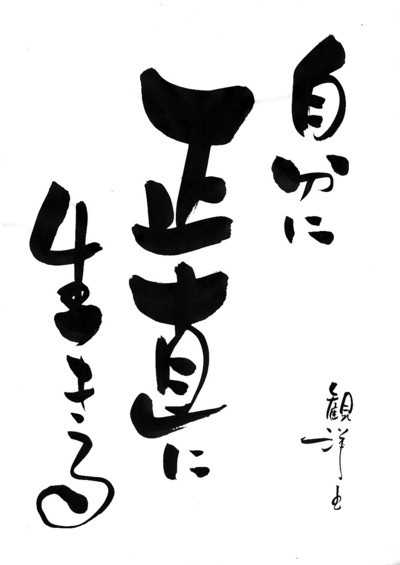 自分に
正直に
生きる
観洋